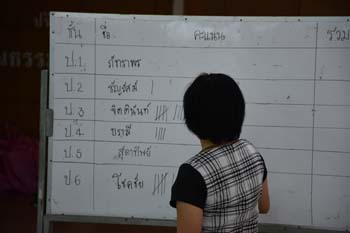 ชั้น ชื่อ คะแนน รวม
ป.1 ภัทราพร
ป.2 ชัญรัสม์
ป.3 จิตตินันท์
ป.4 บรามี
ป.5 สุดาทิพย์
ป.6 โชคชัย